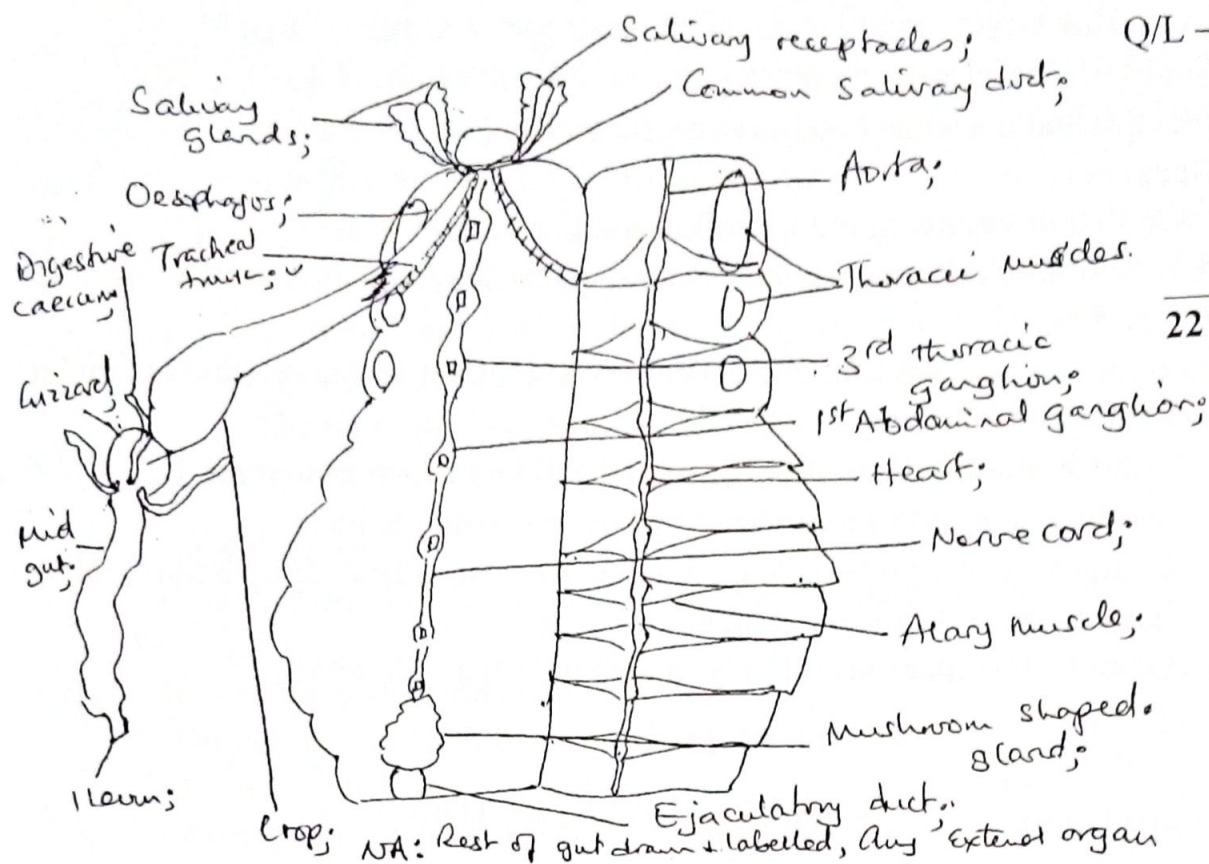 Q/L -
Salivary receptacles;
Common Salivary duct;
Salivary
glands;
Aorta;
Oesophagus;
Digestive
caecum;
Tracheal
trunk;
Thoracic muscles.
22
Gizzard;
3rd thoracic
ganglion;
1st Abdominal ganglion;
Heart;
Mid
gut;
Nerve cord;
Alary muscle;
Mushroom shaped
gland;
Ileum;
Ejaculatory duct;
Crop;
NA: Rest of gut drawn + labelled, Any External organ